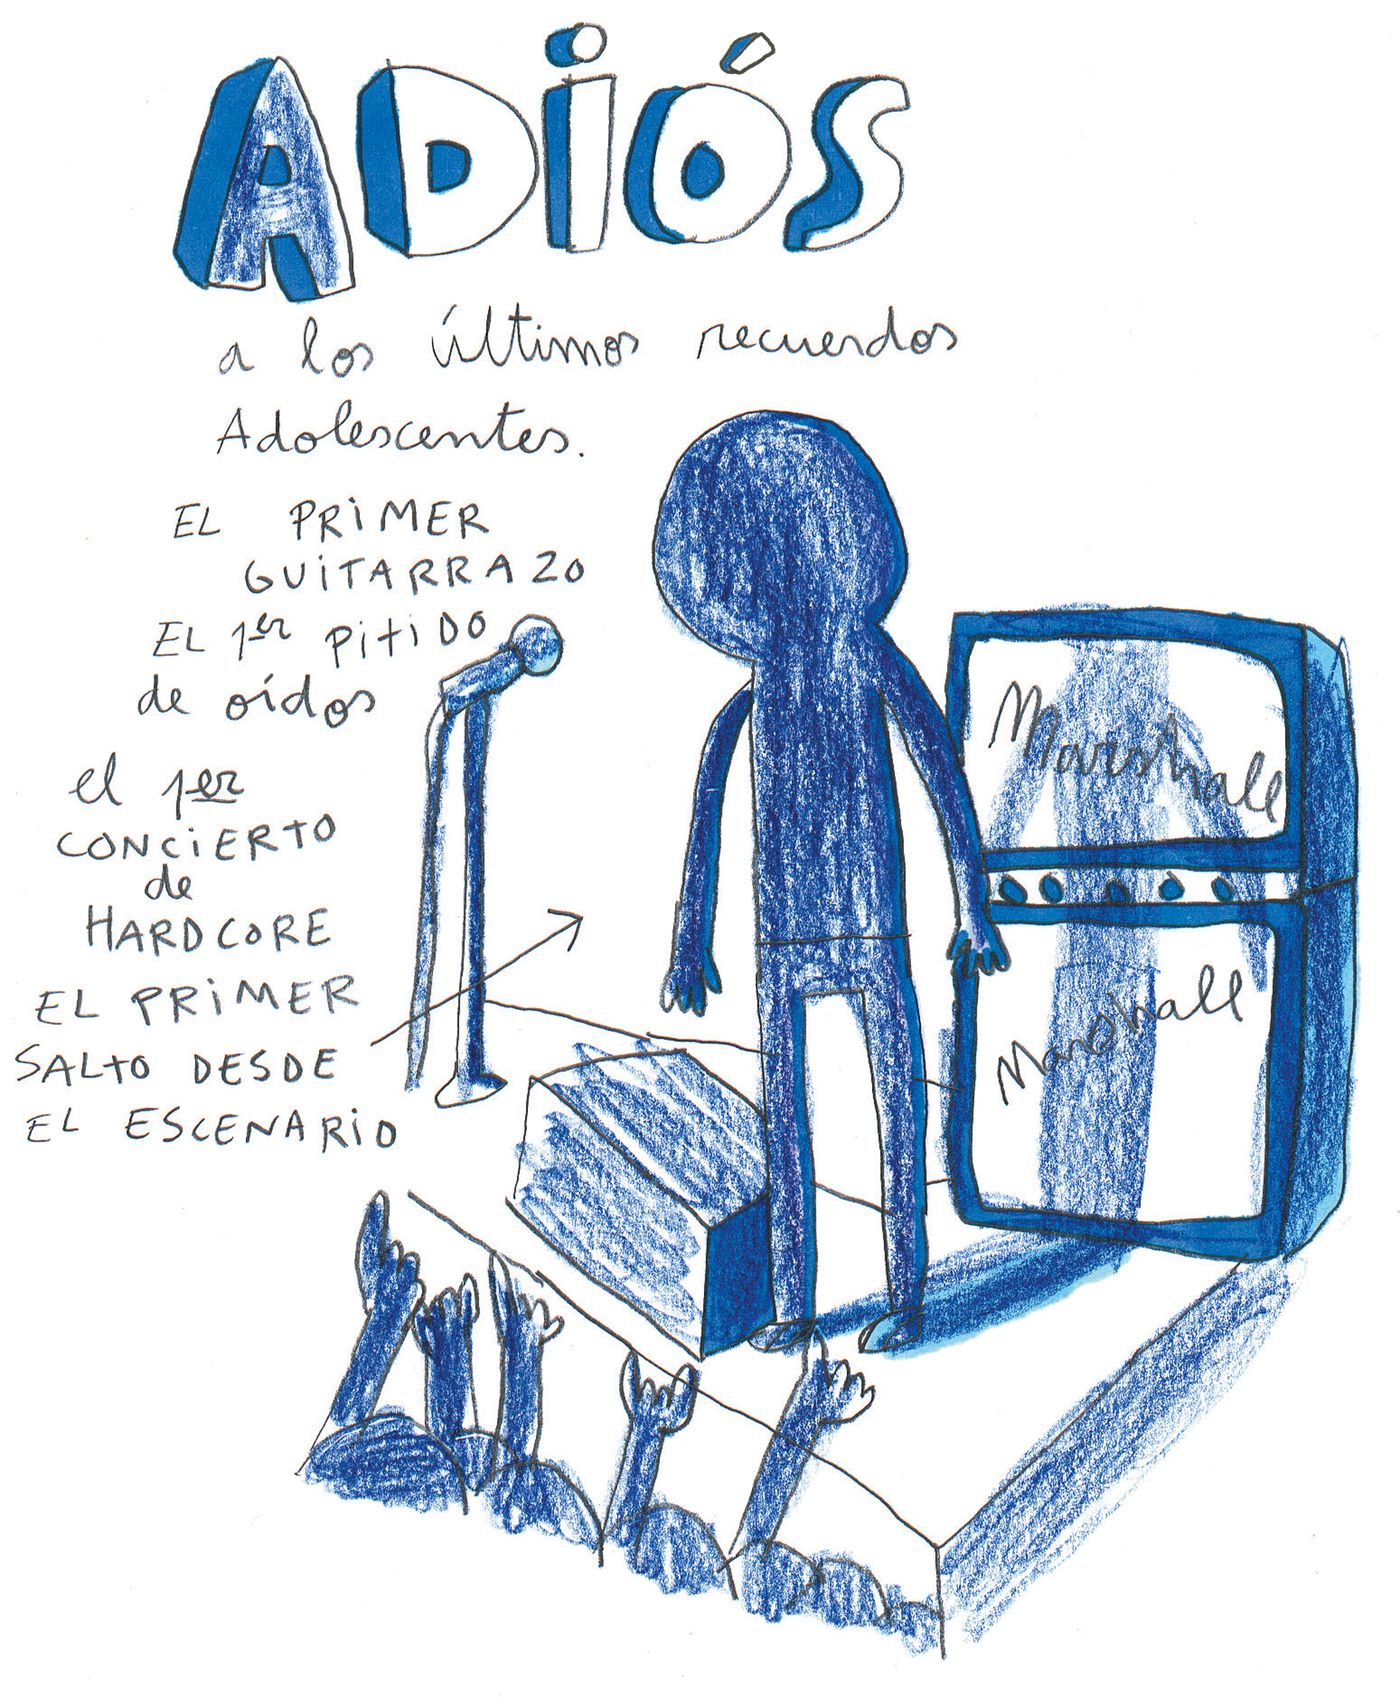 ADiÓS
a los últimos recuerdos
Adolescentes.
EL PRiMER
GUiTARRAZO
EL 1er PitiDO
de oídos
el 1er
CONCiERTO
de
HARDCORE
EL PRiMER
SALTO DESDE
EL ESCENARiO
Marshall
Marshall